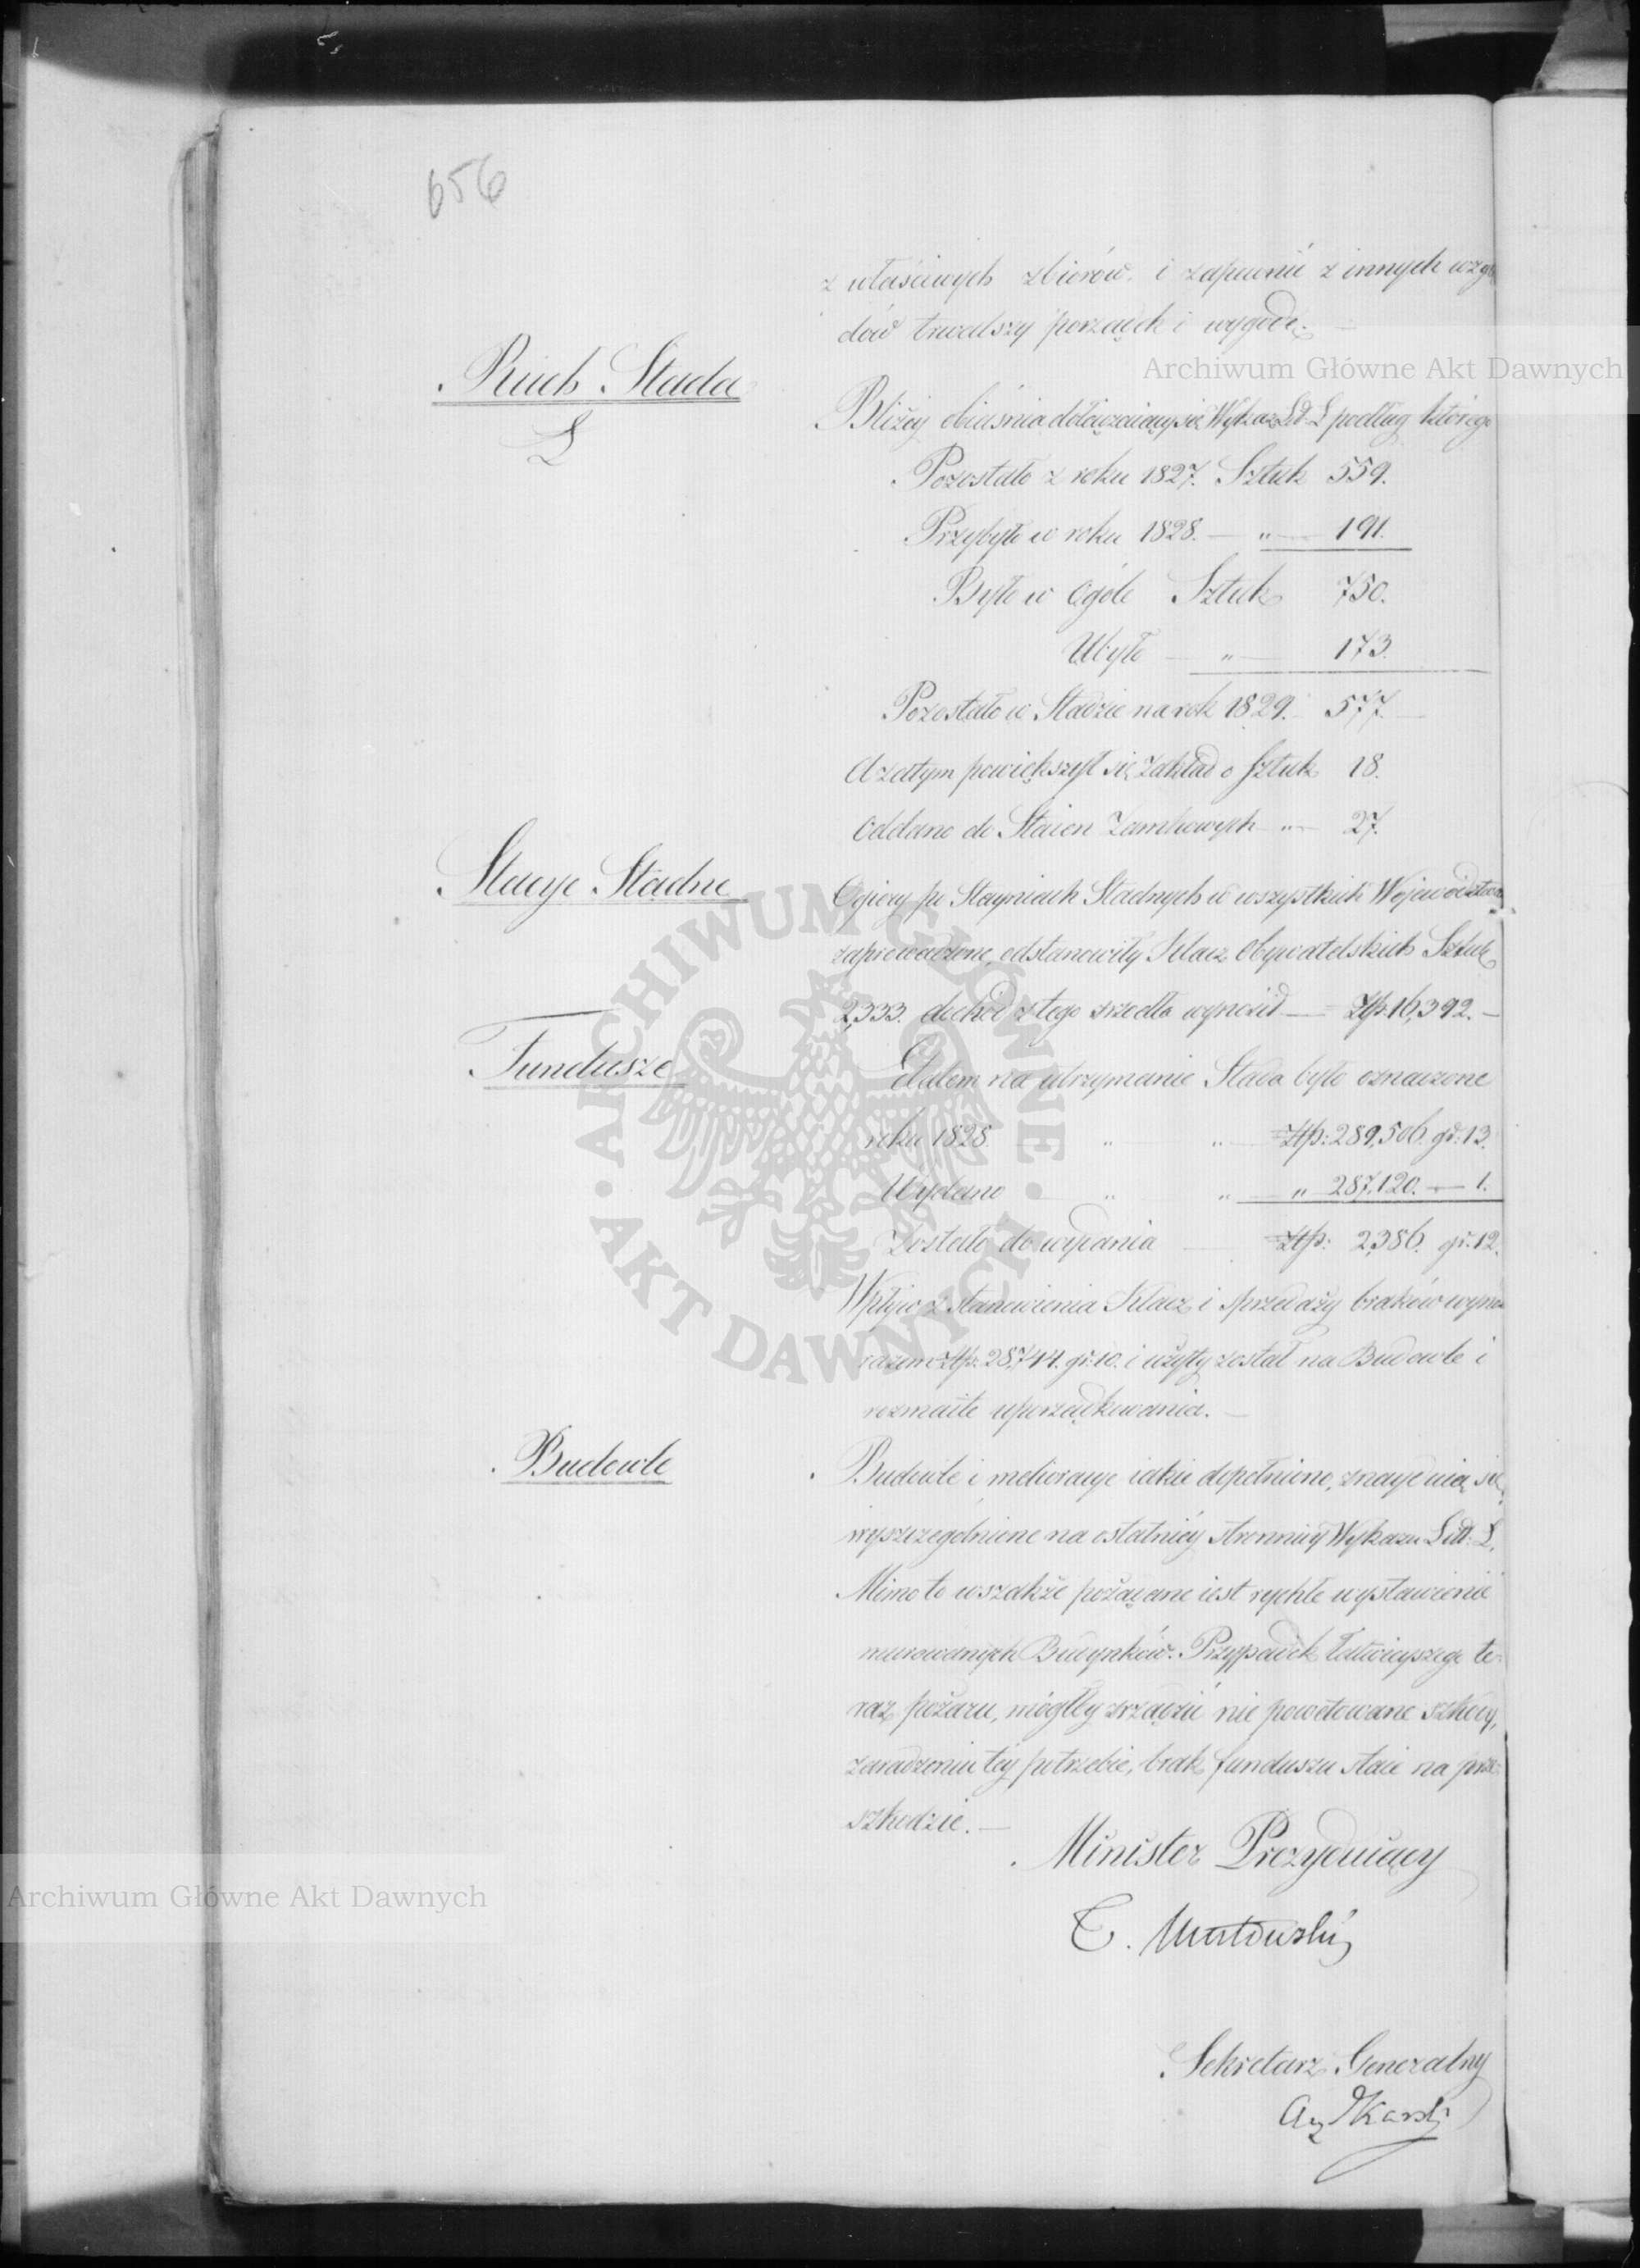 656
z właściwych zbiorów i zapewnić z innych wzglę
dów trwalszy porządek i wygodę. —
Archiwum Główne Akt Dawnych
Ruch Stada
L
Bliżéy obiaśnia dołączaiący się Wykaz Lit: L podług którego
Pozostało z roku 1827. Sztuk 559.
Przybyło w roku 1828. — " — 191.
Było w Ogóle Sztuk 750.
Ubyło — " — 173.
Pozostało w Stadzie na rok 1829. 577. —
A zatym powiększył się Zakład o Sztuk 18.
Oddano do Staien Zamkowych — " — 27.
Stacye Stadne
Ogiery po Stayniach Stadnych w wszystkich Województwa
zaprowadzone, odstanowiły Klacz Obywatelskich Sztuk
2,333. dochód z tego źrzodła wynosił — Złp: 16,392. —
Fundusze
Etatem na utrzymanie Stada było oznaczone
roku 1828 " " Złp: 289,506. gr: 13.
Wydano " " — " 287,120. — 1.
Zostało do wydania — Złp: 2,386. gr: 12.
Wpływ z stanowienia Klacz i sprzedaży braków wynosi
razem Złp: 28,744. gr: 10. i użyty został na Budowle i
rozmaite uporządkowania. —
Budowle
Budowle i melioracye iakie dopełniono, znayduią się
wyszczególnione na ostatniéy stronnicy Wykazu Litt: L.
Mimo to wszakże pożądane iest rychłe wystawienie
murowanych Budynków. Przypadek łatwieyszego te-
raz pożaru, mógłby zrządzić nie powetowane szkody,
zaradzeniu téy potrzebie, brak funduszu staie na prze-
szkodzie. —
Minister Prezyduiący
T. Mostowski
Archiwum Główne Akt Dawnych
Sekretarz Generalny
ARCHIWUM GŁÓWNE
AKT DAWNYCH